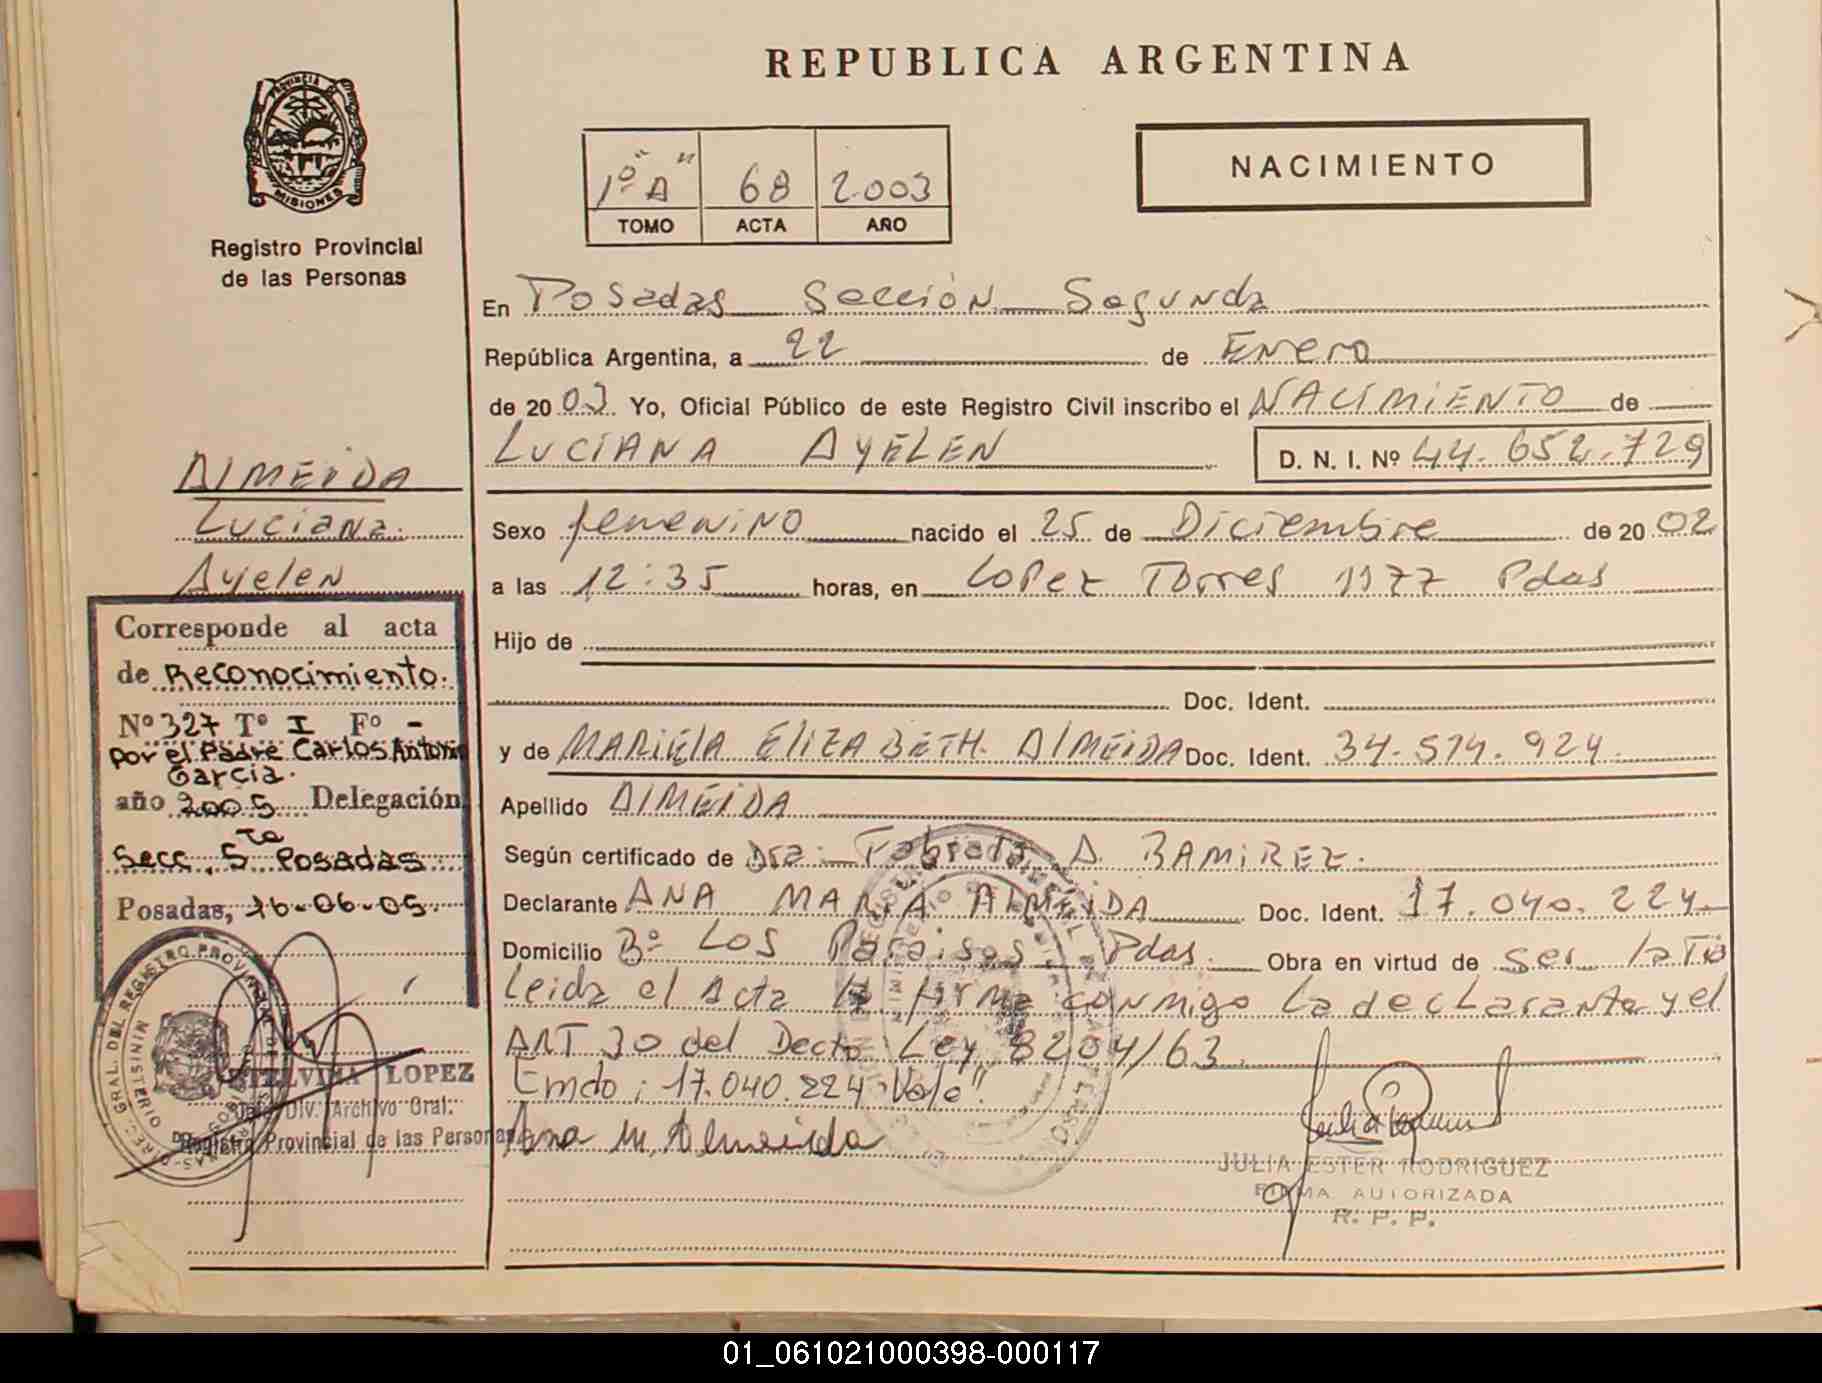 REPUBLICA ARGENTINA
PROVINCIA DE
MISIONES
Registro Provincial
de las Personas
1º "A" 68 2.003
TOMO ACTA AÑO
NACIMIENTO
En Posadas Sección Segunda
República Argentina, a 22 de Enero
de 2003 Yo, Oficial Público de este Registro Civil inscribo el NACIMIENTO de
LUCIANA AYELEN D. N. I. Nº 44.652.729
Sexo femenino nacido el 25 de Diciembre de 2002
a las 12:35 horas, en Lopez Torres 1977 Pdas
Hijo de
Doc. Ident.
y de MARIELA ELIZABETH ALMEIDA Doc. Ident. 34.574.924.
Apellido ALMEIDA
Según certificado de Dra. A. RAMIREZ.
Declarante ANA MARIA ALMEIDA Doc. Ident. 17.040.224
Domicilio Bº Los Paraisos Pdas. Obra en virtud de ser la Tia
Leida el Acta la firma conmigo la declarante y el
ART 30 del Decto Ley 8204/63.
Emdo: 17.040.224 Vale".
Ana M. Almeida
JULIA ESTER RODRIGUEZ
FIRMA AUTORIZADA
R. P. P.
ALMEIDA
Luciana
Ayelen
Corresponde al acta
de Reconocimiento.
Nº 327 Tº I Fº -
por el Padre Carlos Antonio
Garcia.
año 2005 Delegación
Secc. 5ta Posadas.
Posadas, 16-06-05.
LOPEZ
Div. Archivo Gral.
Registro Provincial de las Personas
01_061021000398-000117